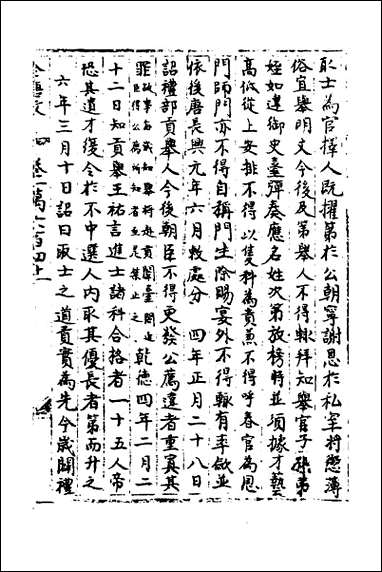 取士為官擇人既擢第於公朝寧謝恩於私室將懲薄
俗宜舉明文今後及第舉人不得輒拜知舉官子孫弟
姪如違御史臺彈奏應名姓次第放榜時並須據才藝
高低從上安排不得以隻科為貴兼不得呼春官為恩
門師門亦不得自稱門生除賜宴外不得輒有率斂並
依後唐長興元年六月敕處分 四年正月二十八日
詔禮部貢舉人今後朝臣不得更發公薦違者重寘其
罪故事每歲知舉將赴貢闈臺閣近臣得公薦所知者至是禁止之乾德四年二月二
十二日知貢舉王祐言進士諸科合格者一十五人帝
恐其遺才復令於不中選人內取其優長者第而升之
六年三月十日詔曰取士之道責實為先今歲關禮
卷一萬六百四十